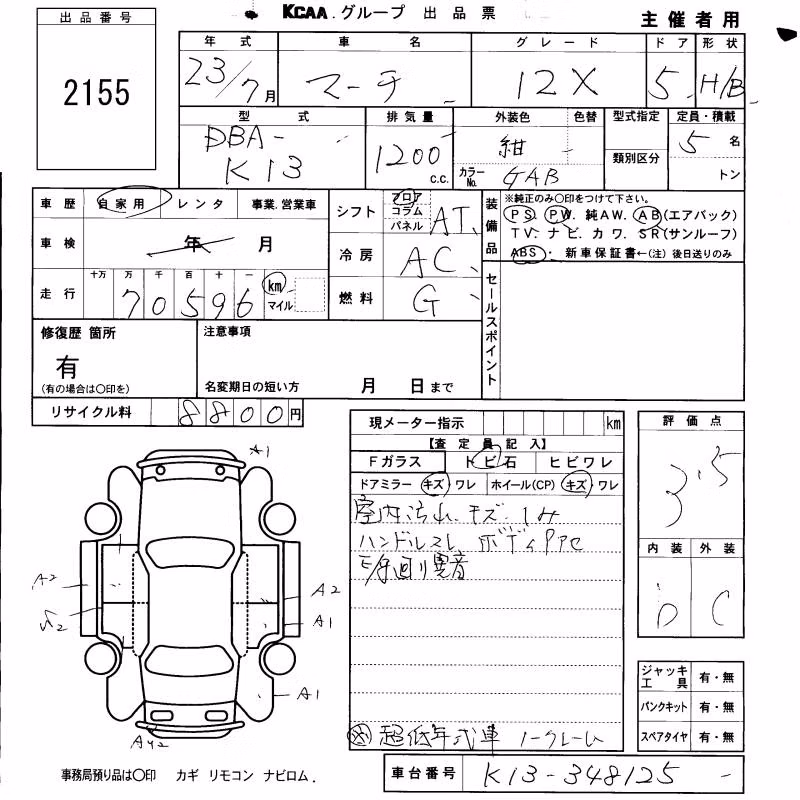 KCAA.グループ 出品票
主催者用
出品番号
2155
年式 車名 グレード ドア 形状
23/7月 マーチ 12X 5 H/B
型式 排気量 外装色 色替 型式指定 定員・積載
DBA-K13 1200c.c. 紺 5名
カラーNo. GAB 類別区分 トン
車歴 自家用 レンタ 事業.営業車
シフト フロア コラム パネル AT
装備品 ※純正のみ〇印をつけて下さい。
PS. PW. 純AW. AB(エアバック)
TV. ナビ. カワ. SR(サンルーフ)
ABS・ 新車保証書←(注)後日送りのみ
車検 年 月
冷房 AC
走行 十万 万 千 百 十 一
70596 km マイル
燃料 G
セールスポイント
修復歴 箇所
有
(有の場合は〇印を)
注意事項
名変期日の短い方 月 日まで
リサイクル料 8800円
現メーター指示 km
【査定員記入】
Fガラス トビ石 ヒビワレ
ドアミラー キズ ワレ ホイール(CP) キズ ワレ
室内汚れ.キズ.シミ
ハンドルスレ ボディ
異音
超低年式車 ノークレーム
評価点
3.5
内装 外装
D C
A1
A2
A2
A1
A1
ジャッキ工具 有・無
パンクキット 有・無
スペアタイヤ 有・無
事務局預り品は〇印 カギ リモコン ナビロム.
車台番号 K13-348125